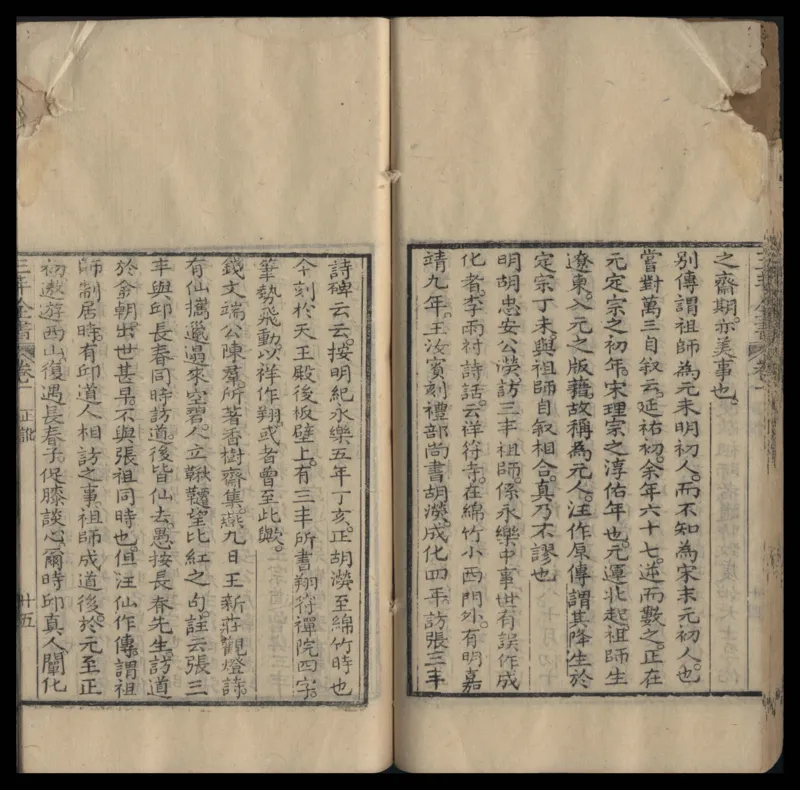 之齋期亦美事也
別傳謂祖師為元末明初人而不知為宋末元初人也
嘗對萬三自叙云延祐初余年六十七述而數之正在
元定宗之初年宋理宗之淳佑年也元運北起祖師生
遼東入元之版藉故稱為元人汪作原傳謂其降生於
定宗丁未與祖師自叙相合真乃不謬也
明胡忠安公濙訪三丰祖師係永樂中事世有誤作成
化者李雨村詩話云祥符寺在綿竹小西門外有明嘉
靖九年王汝賓刻禮部尚書胡濙成化四年訪張三丰
詩碑云云按明紀永樂五年丁亥正胡濙至綿竹時也
今刻於天王殿後板壁上有三丰所書翔符禪院四字
筆勢飛動以祥作翔或者曾至此歟
錢文端公陳羣所著香樹齋集燕九日王新莊觀燈詩
有仙攜邋遢來空碧人立鞦韆望比紅之句註云張三
丰與邱長春同時訪道後皆仙去愚按長春先生訪道
於金朝出世甚早不與張祖同時也但汪仙作傳謂祖
師制居時有邱道人相訪之事祖師成道後於元至正
初遨遊西山復遇長春子促膝談心爾時邱真人闡化
三丰全書 卷一 正訛 廿五